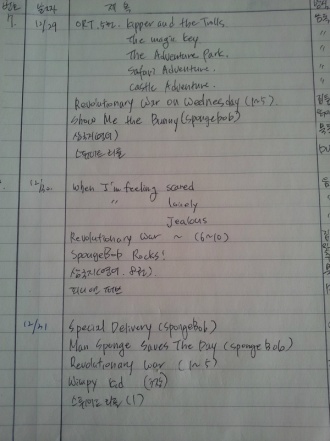 번호 날짜 제목
7. 11/29 ORT. 5단. Kipper and the Trolls
The magic key
The Adventure Park.
Safari Adventure.
Castle Adventure.
Revolutionary War on Wednesday (1~5)
Show Me the Bunny (spongebob)
삼국지(영어)
스튜어트 리틀
12/20 When I'm feeling scared
〃 lonely
Jealous
Revolutionary War ~ (6~10)
SpongeBob Rocks!
삼국지(영어.
12/21 Special Delivery (SpongeBob)
Man Sponge Saves The Day (sponge Bob)
Revolutionary War (1~5)
Wimpy Kid
스튜어트 리틀 (1)